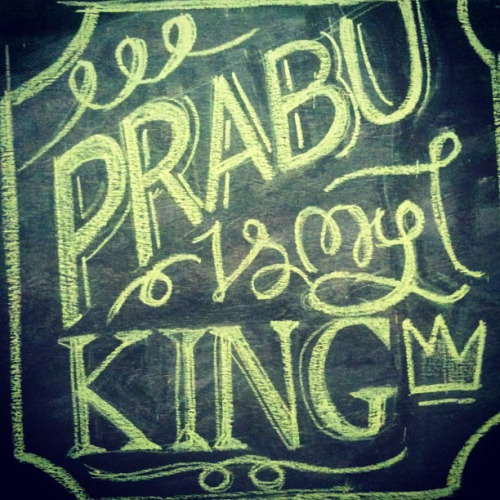 PRABU
is my
KING